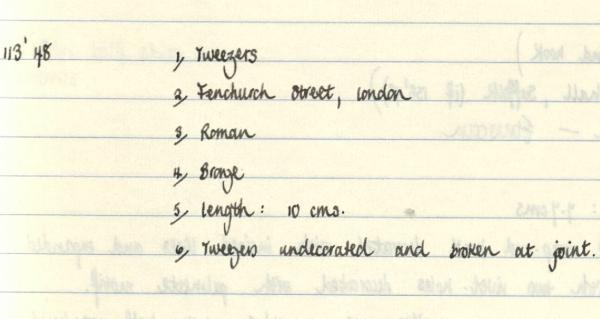 113' 48 1, Tweezers
2, Fenchurch Street, London
3, Roman
4, Bronze
5, Length: 10 cms.
6, Tweezers undecorated and broken at joint.